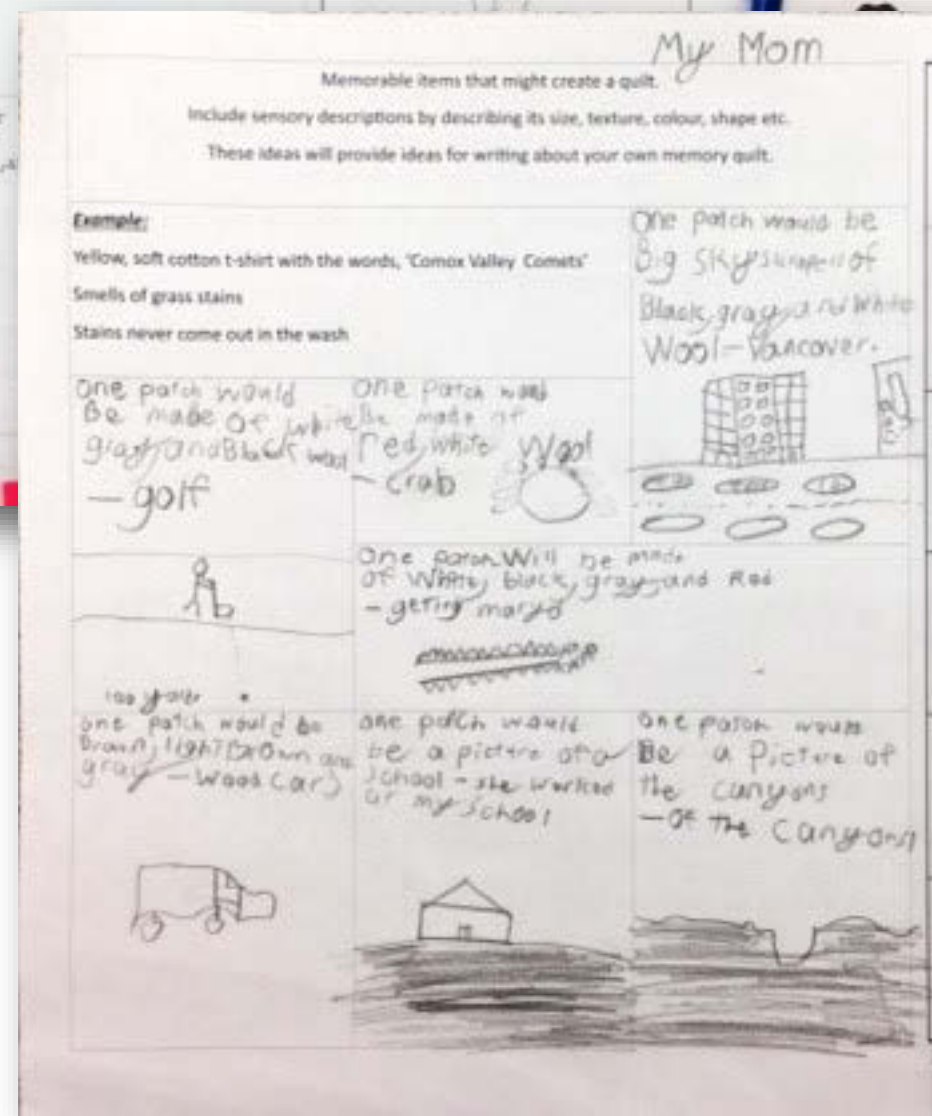 My Mom
Memorable items that might create a quilt.
Include sensory descriptions by describing its size, texture, colour, shape etc.
These ideas will provide ideas for writing about your own memory quilt.
Example:
Yellow, soft cotton t-shirt with the words, 'Comox Valley Comets'
Smells of grass stains
Stains never come out in the wash
One patch would be
Big skyscrapers of
Black, gray, and White
Wool - Vancover.
One patch would
Be made of white
gray, and Black wool
- golf
One patch would
Be made of
red, white Wool
- crab
One patch Will be made
of White, black, gray, and Red
- geting maryd
100 yards
one patch would be
Brown, light Brown and
gray - Wood Cars
one patch would
be a picture of a
School - she worked
at my School
One patch would
Be a Picture of
the canyons
- of the Canyons